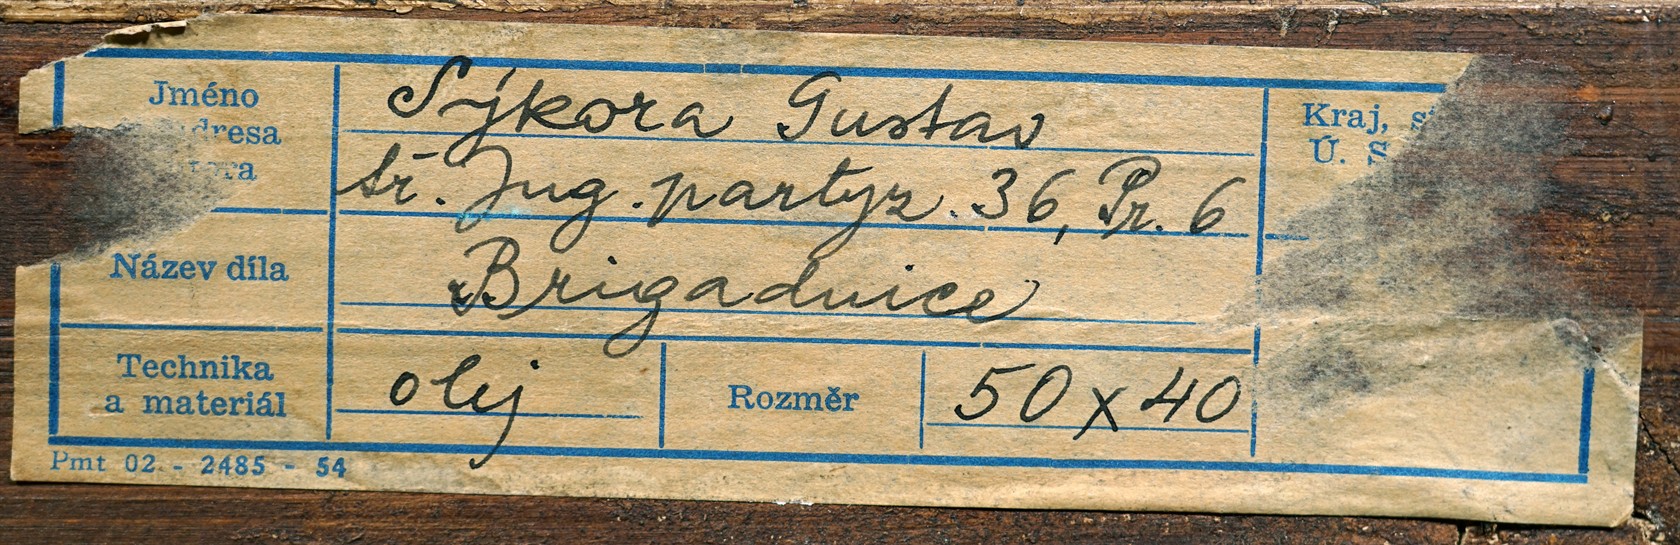 Jméno
Sýkora Gustav
Kraj,
Ú.
tř. Jug. partyz. 36, Pr. 6
Název díla
Brigadnice
Technika
a materiál
olej
Rozměr
50 x 40
Pmt 02 - 2485 - 54